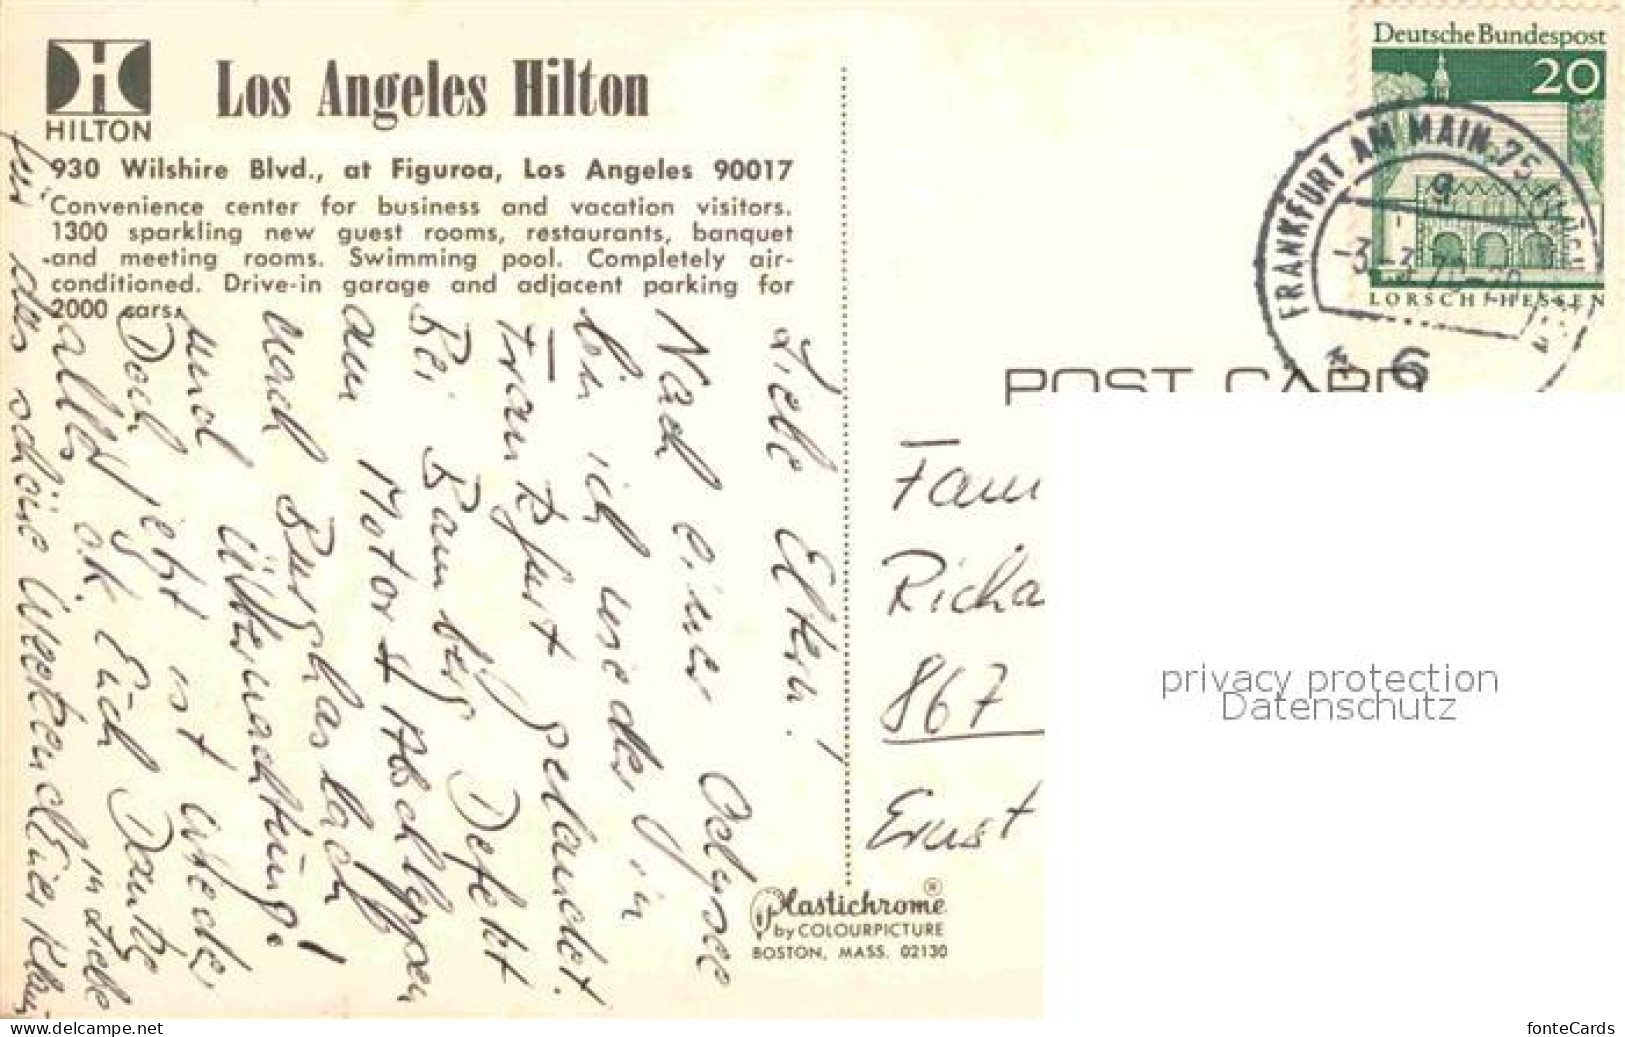 HILTON
Los Angeles Hilton
930 Wilshire Blvd., at Figuroa, Los Angeles 90017
Convenience center for business and vacation visitors.
1300 sparkling new guest rooms, restaurants, banquet
and meeting rooms. Swimming pool. Completely air-
conditioned. Drive-in garage and adjacent parking for
2000 cars.
Liebe Eltern!
Nach einer Odyssee
bin ich wieder in
Frankfurt gelandet.
Bei Bamberg Defekt
am Motor + Abschleppen
nach Burghaslach
und Übernachtung!
Doch jetzt ist wieder
alles ok. Euch Danke
für das schöne Wochenende
Deutsche Bundespost
20
LORSCH / HESSEN
FRANKFURT AM MAIN 75
-3.-3.70-20
6
POST CARD
Fam
Richa
867
Ernst
Plastichrome ®
by COLOURPICTURE
BOSTON, MASS. 02130
privacy protection
Datenschutz
www.delcampe.net
fonteCards